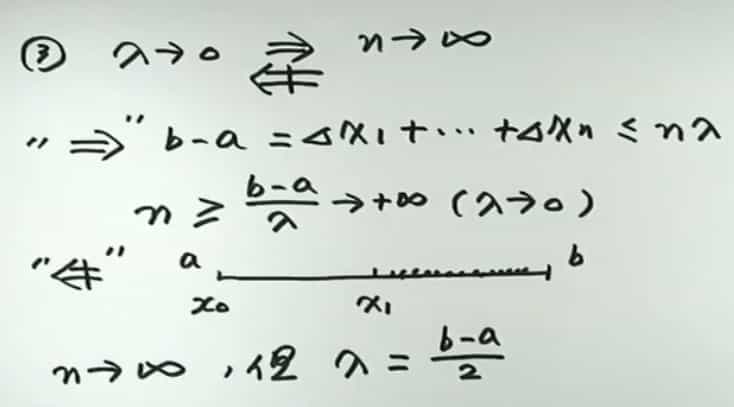 ③ λ→0 ⇒ ⇍ n→∞
"⇒" b-a = Δx₁+⋯+Δxₙ ≤ nλ
n ≥ (b-a)/λ → +∞ (λ→0)
"⇍" a b
x₀ x₁
n→∞ ,但 λ = (b-a)/2